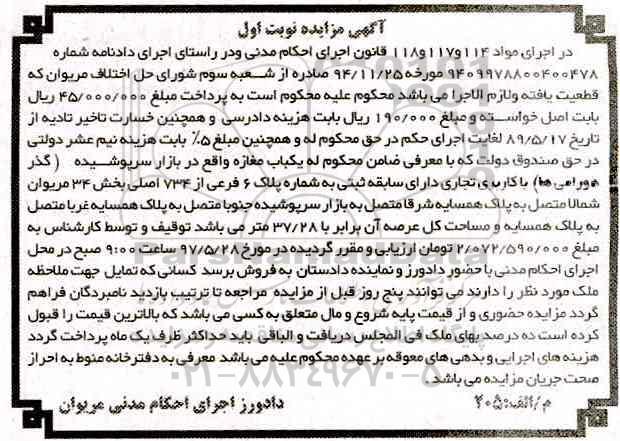 آگهی مزایده نوبت اول
در اجرای مواد ۱۱۴و۱۱۷و۱۱۸ قانون اجرای احکام مدنی ودر راستای اجرای دادنامه شماره
۹۴۰۹۹۷۸۸۰۰۴۰۰۴۷۸ مورخه ۹۴/۱۱/۲۵ صادره از شعبه سوم شورای حل اختلاف مریوان که
قطعیت یافته ولازم الاجرا می باشد محکوم علیه محکوم است به پرداخت مبلغ ۴۵/۰۰۰/۰۰۰ ریال
بابت اصل خواسته و مبلغ ۱۹۰/۰۰۰ ریال بابت هزینه دادرسی و همچنین خسارت تاخیر تادیه از
تاریخ ۸۹/۵/۱۷ لغایت اجرای حکم در حق محکوم له و همچنین مبلغ ۵٪ بابت هزینه نیم عشر دولتی
در حق صندوق دولت که با معرفی ضامن محکوم له یکباب مغازه واقع در بازار سرپوشیده ( گذر
هورامی ها) با کاربری تجاری دارای سابقه ثبتی به شماره پلاک ۶ فرعی از ۷۳۴ اصلی بخش ۳۴ مریوان
شمالا متصل به پلاک همسایه شرقا متصل به بازار سرپوشیده جنوبا متصل به پلاک همسایه غربا متصل
به پلاک همسایه و مساحت کل عرصه آن برابر با ۳۷/۲۸ متر می باشد توقیف و توسط کارشناس به
مبلغ ۲/۰۷۲/۵۹۰/۰۰۰ تومان ارزیابی و مقرر گردیده در مورخ ۹۷/۵/۲۸ ساعت ۹:۰۰ صبح در محل
اجرای احکام مدنی با حضور دادورز و نماینده دادستان به فروش برسد کسانی که تمایل جهت ملاحظه
ملک مورد نظر را دارند می توانند پنج روز قبل از مزایده مراجعه تا ترتیب بازدید نامبردگان فراهم
گردد مزایده حضوری و از قیمت پایه شروع و مال متعلق به کسی می باشد که بالاترین قیمت را قبول
کرده است ده درصد بهای ملک فی المجلس دریافت و الباقی باید حداکثر ظرف یک ماه پرداخت گردد
هزینه های اجرایی و بدهی های معوقه بر عهده محکوم علیه می باشد معرفی به دفترخانه منوط به احراز
صحت جریان مزایده می باشد.
۰۲۱-۸۸۳۴۹۶۷۰-۵
م/الف:۲۰۵
دادورز اجرای احکام مدنی مریوان